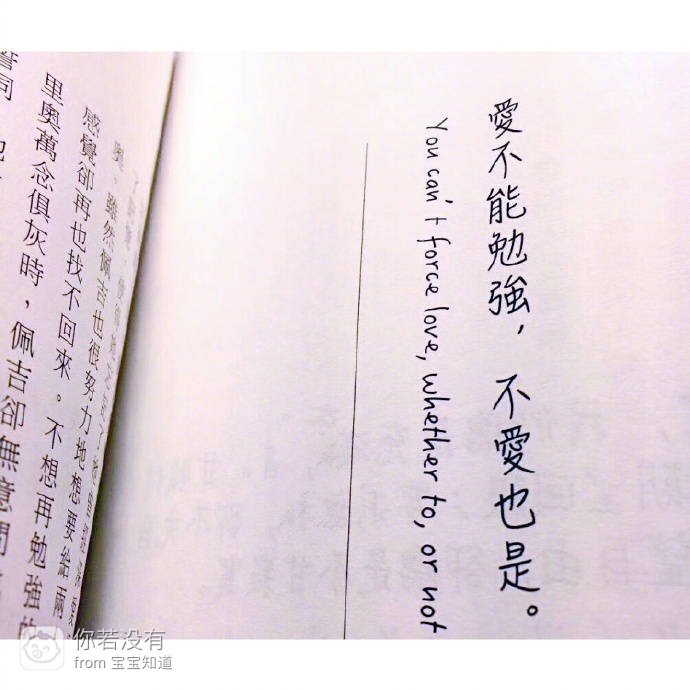 愛不能勉強，不愛也是。
You can't force love, whether to, or not
奧。雖然佩吉也很努力地想要給兩
感覺卻再也找不回來。不想再勉強
里奧萬念俱灰時，佩吉卻無意間
你若没有
from 宝宝知道